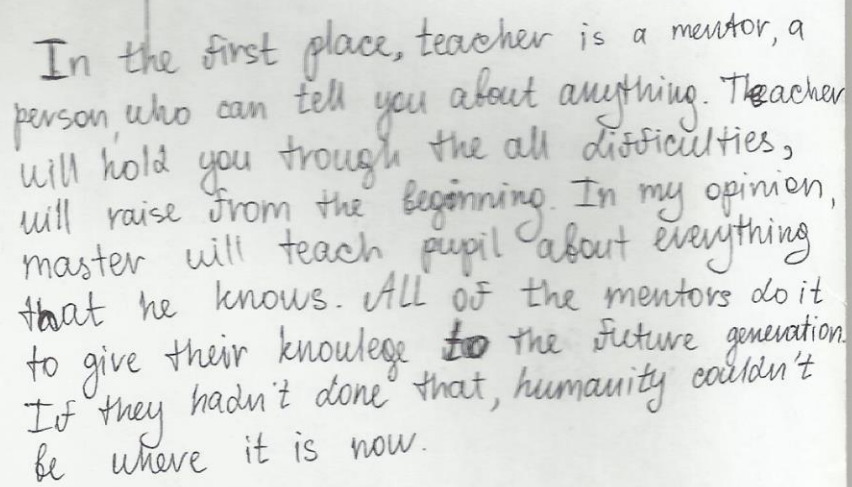 In the first place, teacher is a mentor, a
person, who can tell you about anything. Teacher
will hold you trough the all difficulties,
will raise from the beginning. In my opinion,
master will teach pupil about everything
that he knows. All of the mentors do it
to give their knowlege to the future generation.
If they hadn't done that, humanity couldn't
be where it is now.